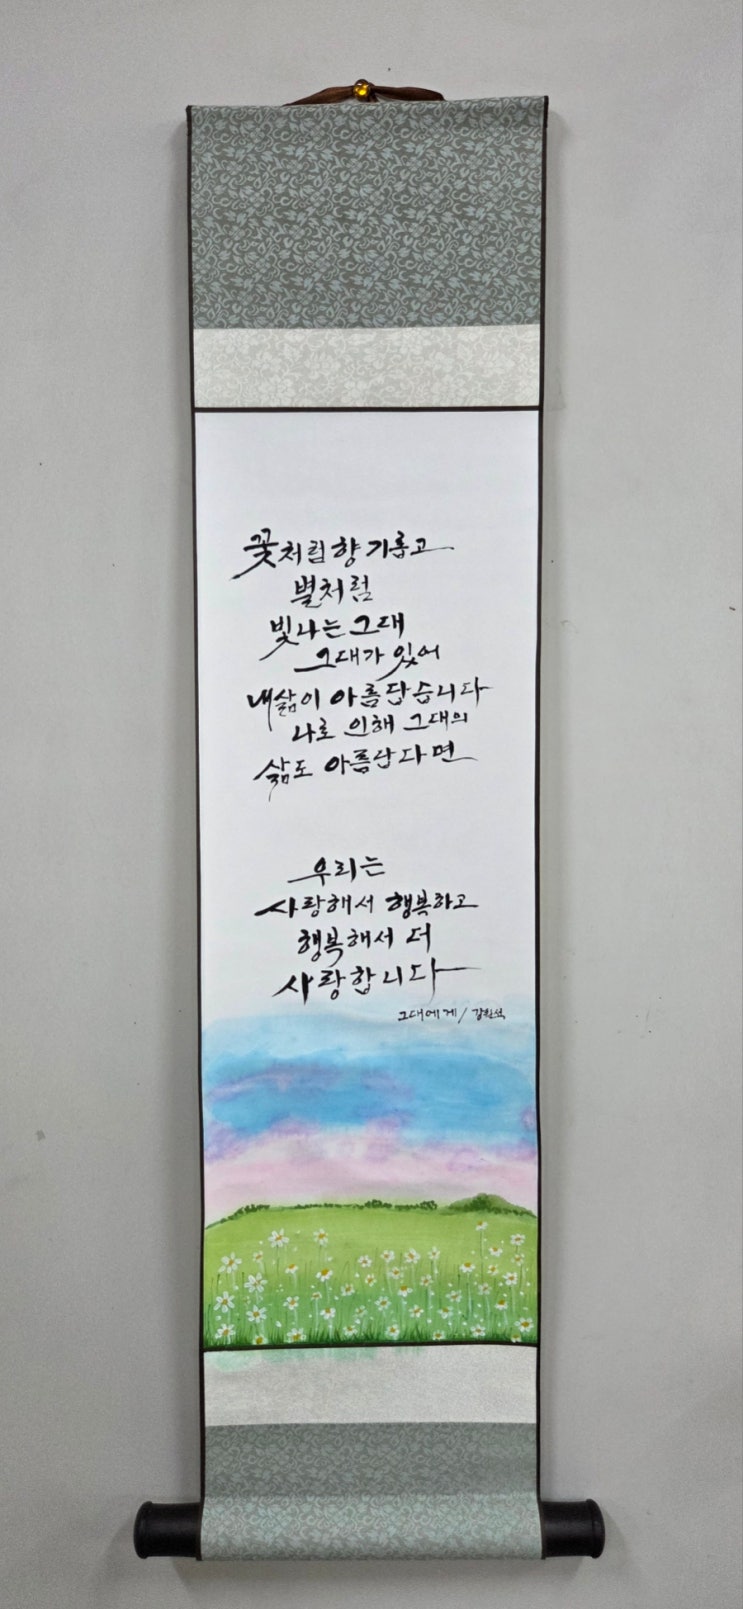 꽃처럼 향기롭고
별처럼
빛나는 그대
그대가 있어
내 삶이 아름답습니다
나로 인해 그대의
삶도 아름답다면
우리는
사랑해서 행복하고
행복해서 더
사랑합니다
그대에게 /